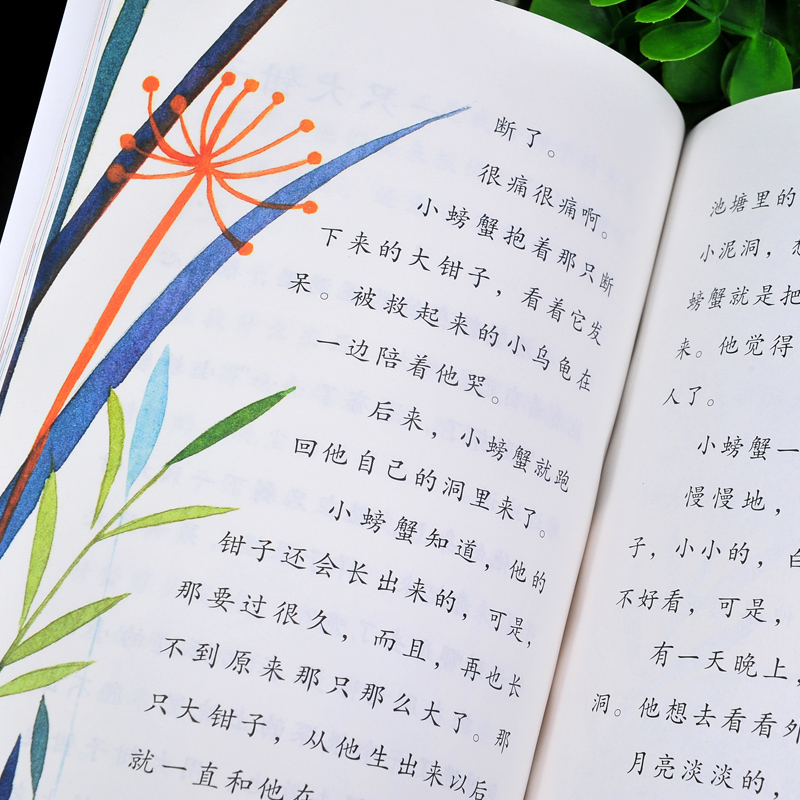 断了。
很痛很痛啊。
小螃蟹抱着那只断
下来的大钳子，看着它发
呆。被救起来的小乌龟在
一边陪着他哭。
后来，小螃蟹就跑
回他自己的洞里来了。
小螃蟹知道，他的
钳子还会长出来的，可是，
那要过很久，而且，再也长
不到原来那只那么大了。那
只大钳子，从他生出来以后
就一直和他在
池塘里的
小泥洞，想
螃蟹就是把
来。他觉得
人了。
小螃蟹一
慢慢地，
子，小小的，白
不好看，可是，
有一天晚上，
洞。他想去看看外
月亮淡淡的，